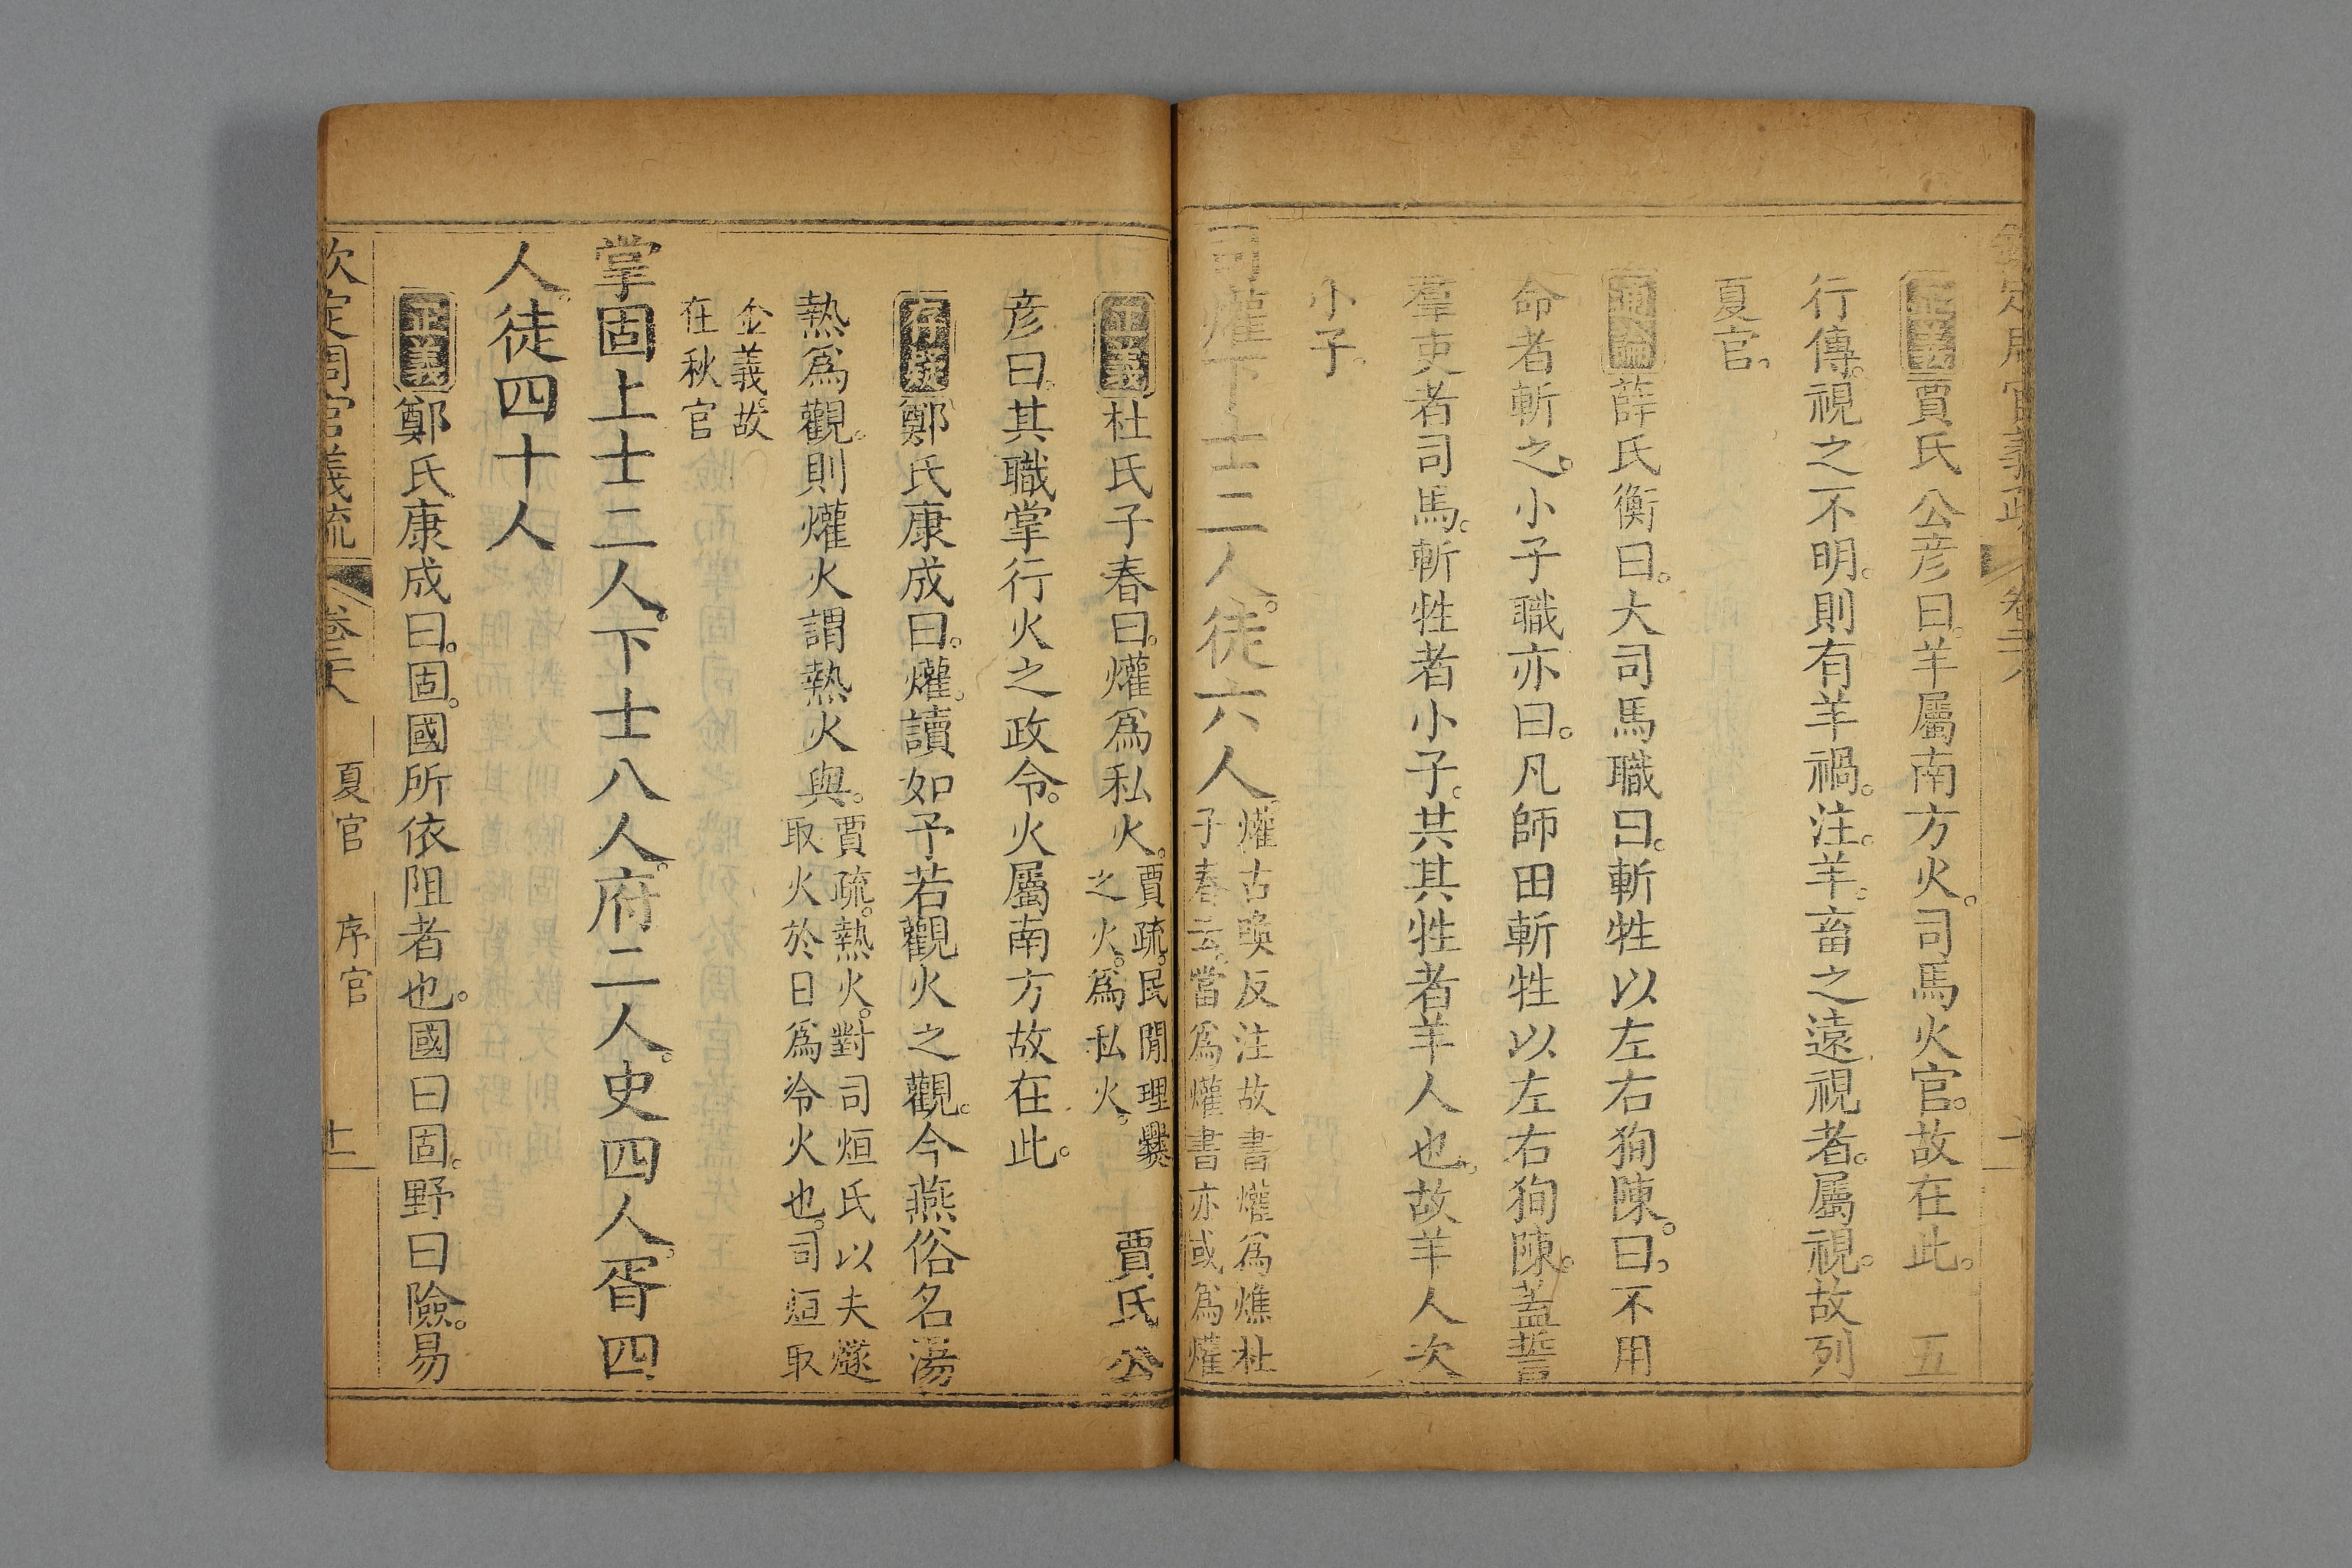 欽定周官義疏 卷二十八
正義賈氏公彦曰。羊屬南方火。司馬火官。故在此。 五
行傳。視之不明。則有羊禍。注。羊。畜之遠視者。屬視。故列
夏官。
通論薛氏衡曰。大司馬職曰。斬牲以左右狥陳。曰。不用
命者斬之。小子職亦曰。凡師田斬牲以左右狥陳。蓋誓
羣吏者司馬。斬牲者小子。共其牲者羊人也。故羊人次
小子。
司爟下士二人。徒六人。爟古喚反注故書爟為燋杜
子春云。當為爟書亦或為爟
正義杜氏子春曰。爟為私火。賈疏。民閒理爨
之火。為私火。 賈氏公
彦曰。其職掌行火之政令。火屬南方故在此。
存疑鄭氏康成曰。爟。讀如予若觀火之觀。今燕俗名湯
熱為觀。則爟火謂熱火與。賈疏。熱火。對司烜氏以夫燧
取火於日為冷火也。司烜取
金義。故
在秋官
掌固上士二人。下士八人。府二人。史四人。胥四
人。徒四十人
正義鄭氏康成曰。固。國所依阻者也。國曰固。野曰險。易
欽定周官義疏 卷二十八 夏官 序官 十二